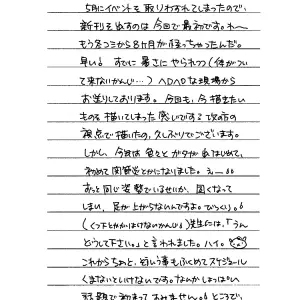 5月にイベントを取りわすれてしまったので、
新刊を出すのは今回で最初です。わ〜
もう冬コミから8ヶ月が経っちゃったんだ。
早い！すでに暑さにやられつつ(体がつい
て来ないかんじ…)へロへロな現場から
お送りしております。今回も、今描きたい
ものを描いてしまった感じです
視点で描いたの、久しぶりでございます。
しかし、今回は色々とガタがきはじめて、
初めて関節炎とかになりました。え—
ずっと同じ姿勢でいるせいか、固くなって
しまい、足が上がらないんですよ。びっくり。
(くつ下とかはけないかんじ)先生には、「うん
どうして下さい。」と言われました。ハイ。
これからちゃんと、匂う事もふくめてスケジュール
くまないといけないです。なんかしょっぱい
話題で初まってすみません。ところで、